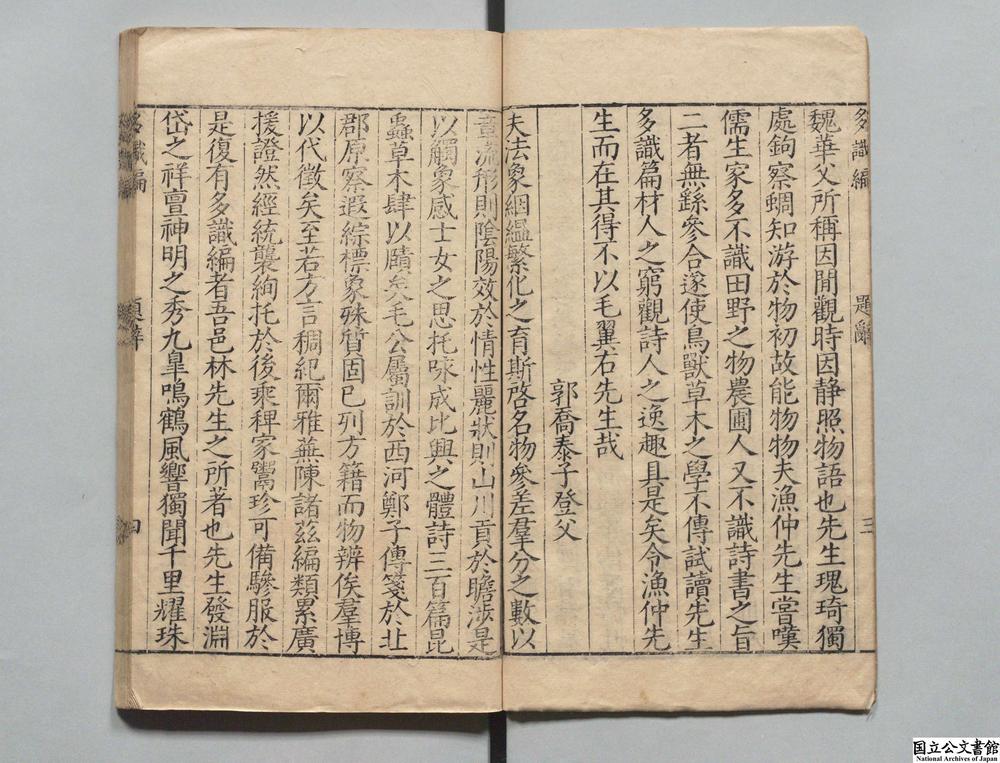 多識編 題辭 三
魏華父所稱因閒觀時因静照物語也先生瑰琦獨
處鉤察蜩知游於物初故能物物夫漁仲先生嘗嘆
儒生家多不識田野之物農圃人又不識詩書之旨
二者無繇參合遂使鳥獸草木之學不傳試讀先生
多識篇材人之窮觀詩人之逸趣具是矣令漁仲先
生而在其得不以毛翼右先生哉
郭喬泰子登父
夫法象絪縕繁化之育斯啓名物參差羣分之數以
章流形則陰陽效於情性麗狀則山川貢於瞻涉是
以觸象感士女之思托咏成比興之體詩三百篇昆
蟲草木肆以賾矣毛公屬訓於西河鄭子傳箋於北
郡原察遐綜標象殊質固已列方籍而物辨俟羣博
以代徵矣至若方言稠紀爾雅蕪陳諸茲編類累廣
援證然經統襲絢托於後乘稗家鬻珍可備驂服於
是復有多識編者吾邑林先生之所著也先生發淵
岱之祥亶神明之秀九臯鳴鶴風響獨聞千里耀珠
多識編 題辭 四
国立公文書館
National Archives of Japan